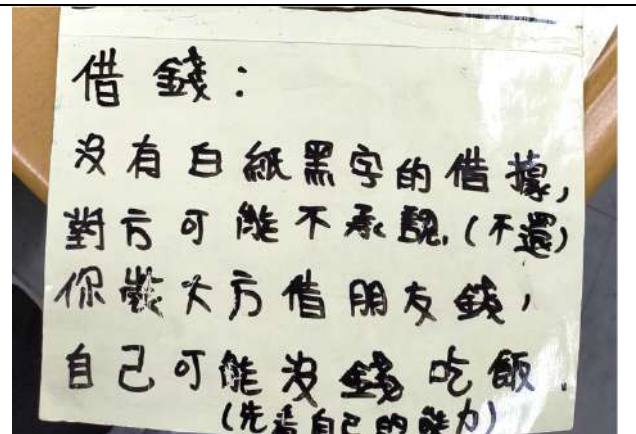 借錢：
沒有白紙黑字的借據,
對方可能不承認.(不還)
你裝大方借朋友錢,
自己可能沒錢吃飯.
(先看自己的能力)